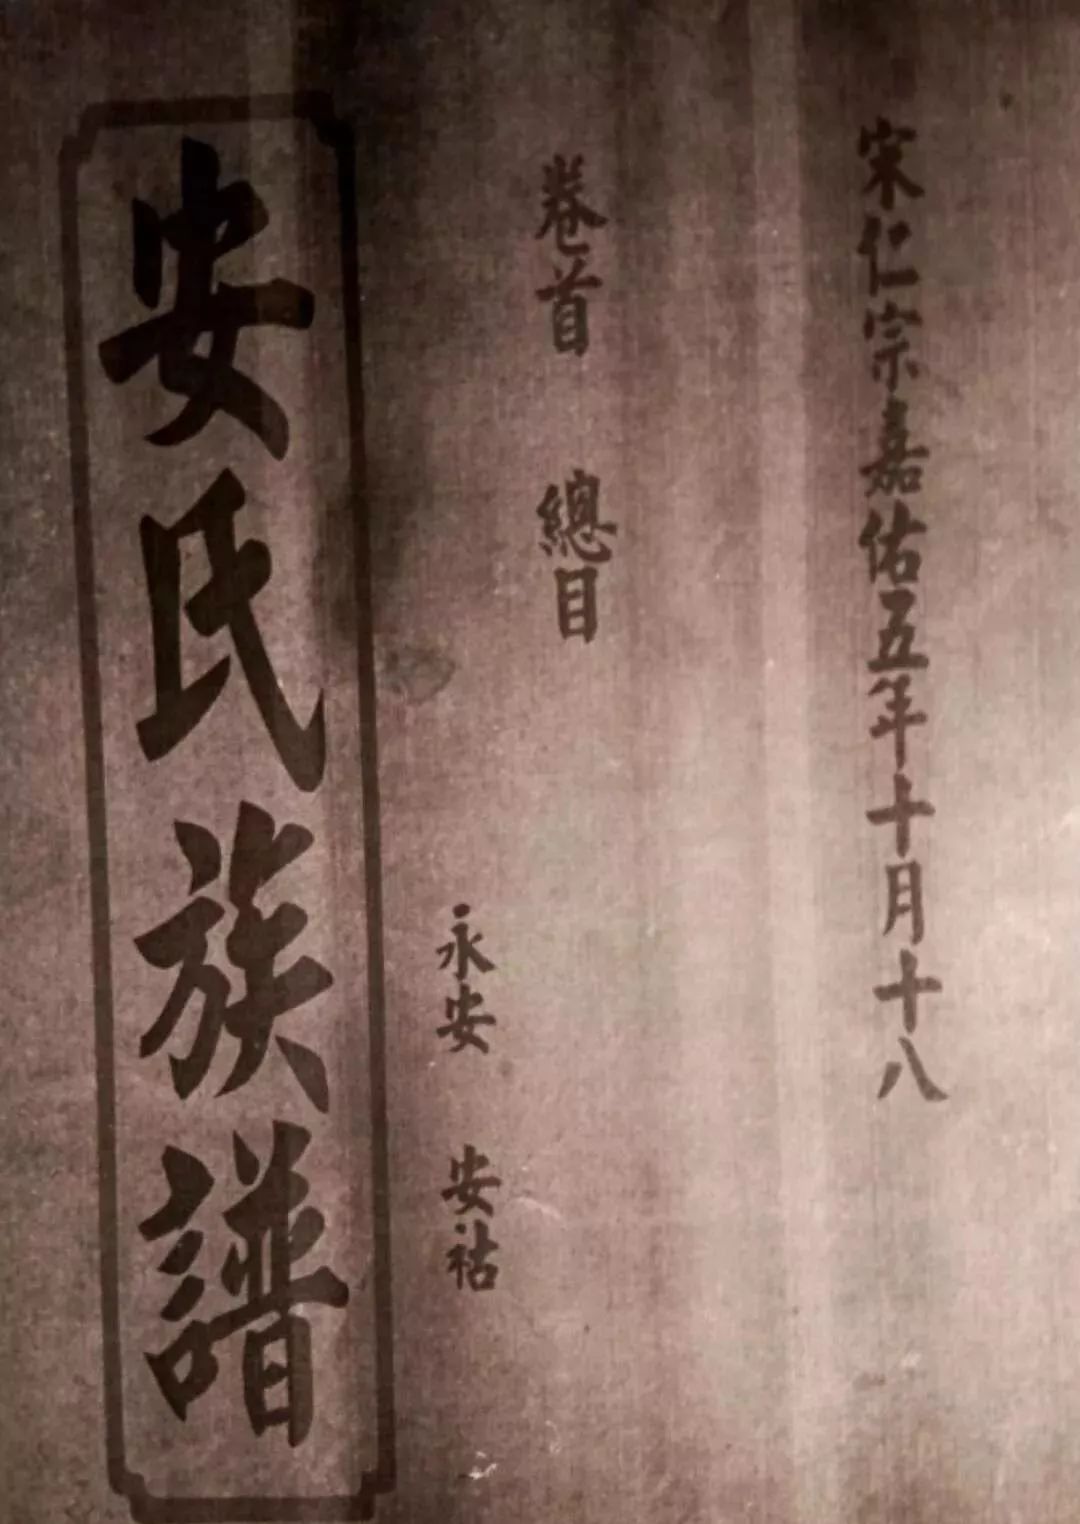 宋仁宗嘉佑五年十月十八
卷首 總目
永安 安祜
安氏族譜